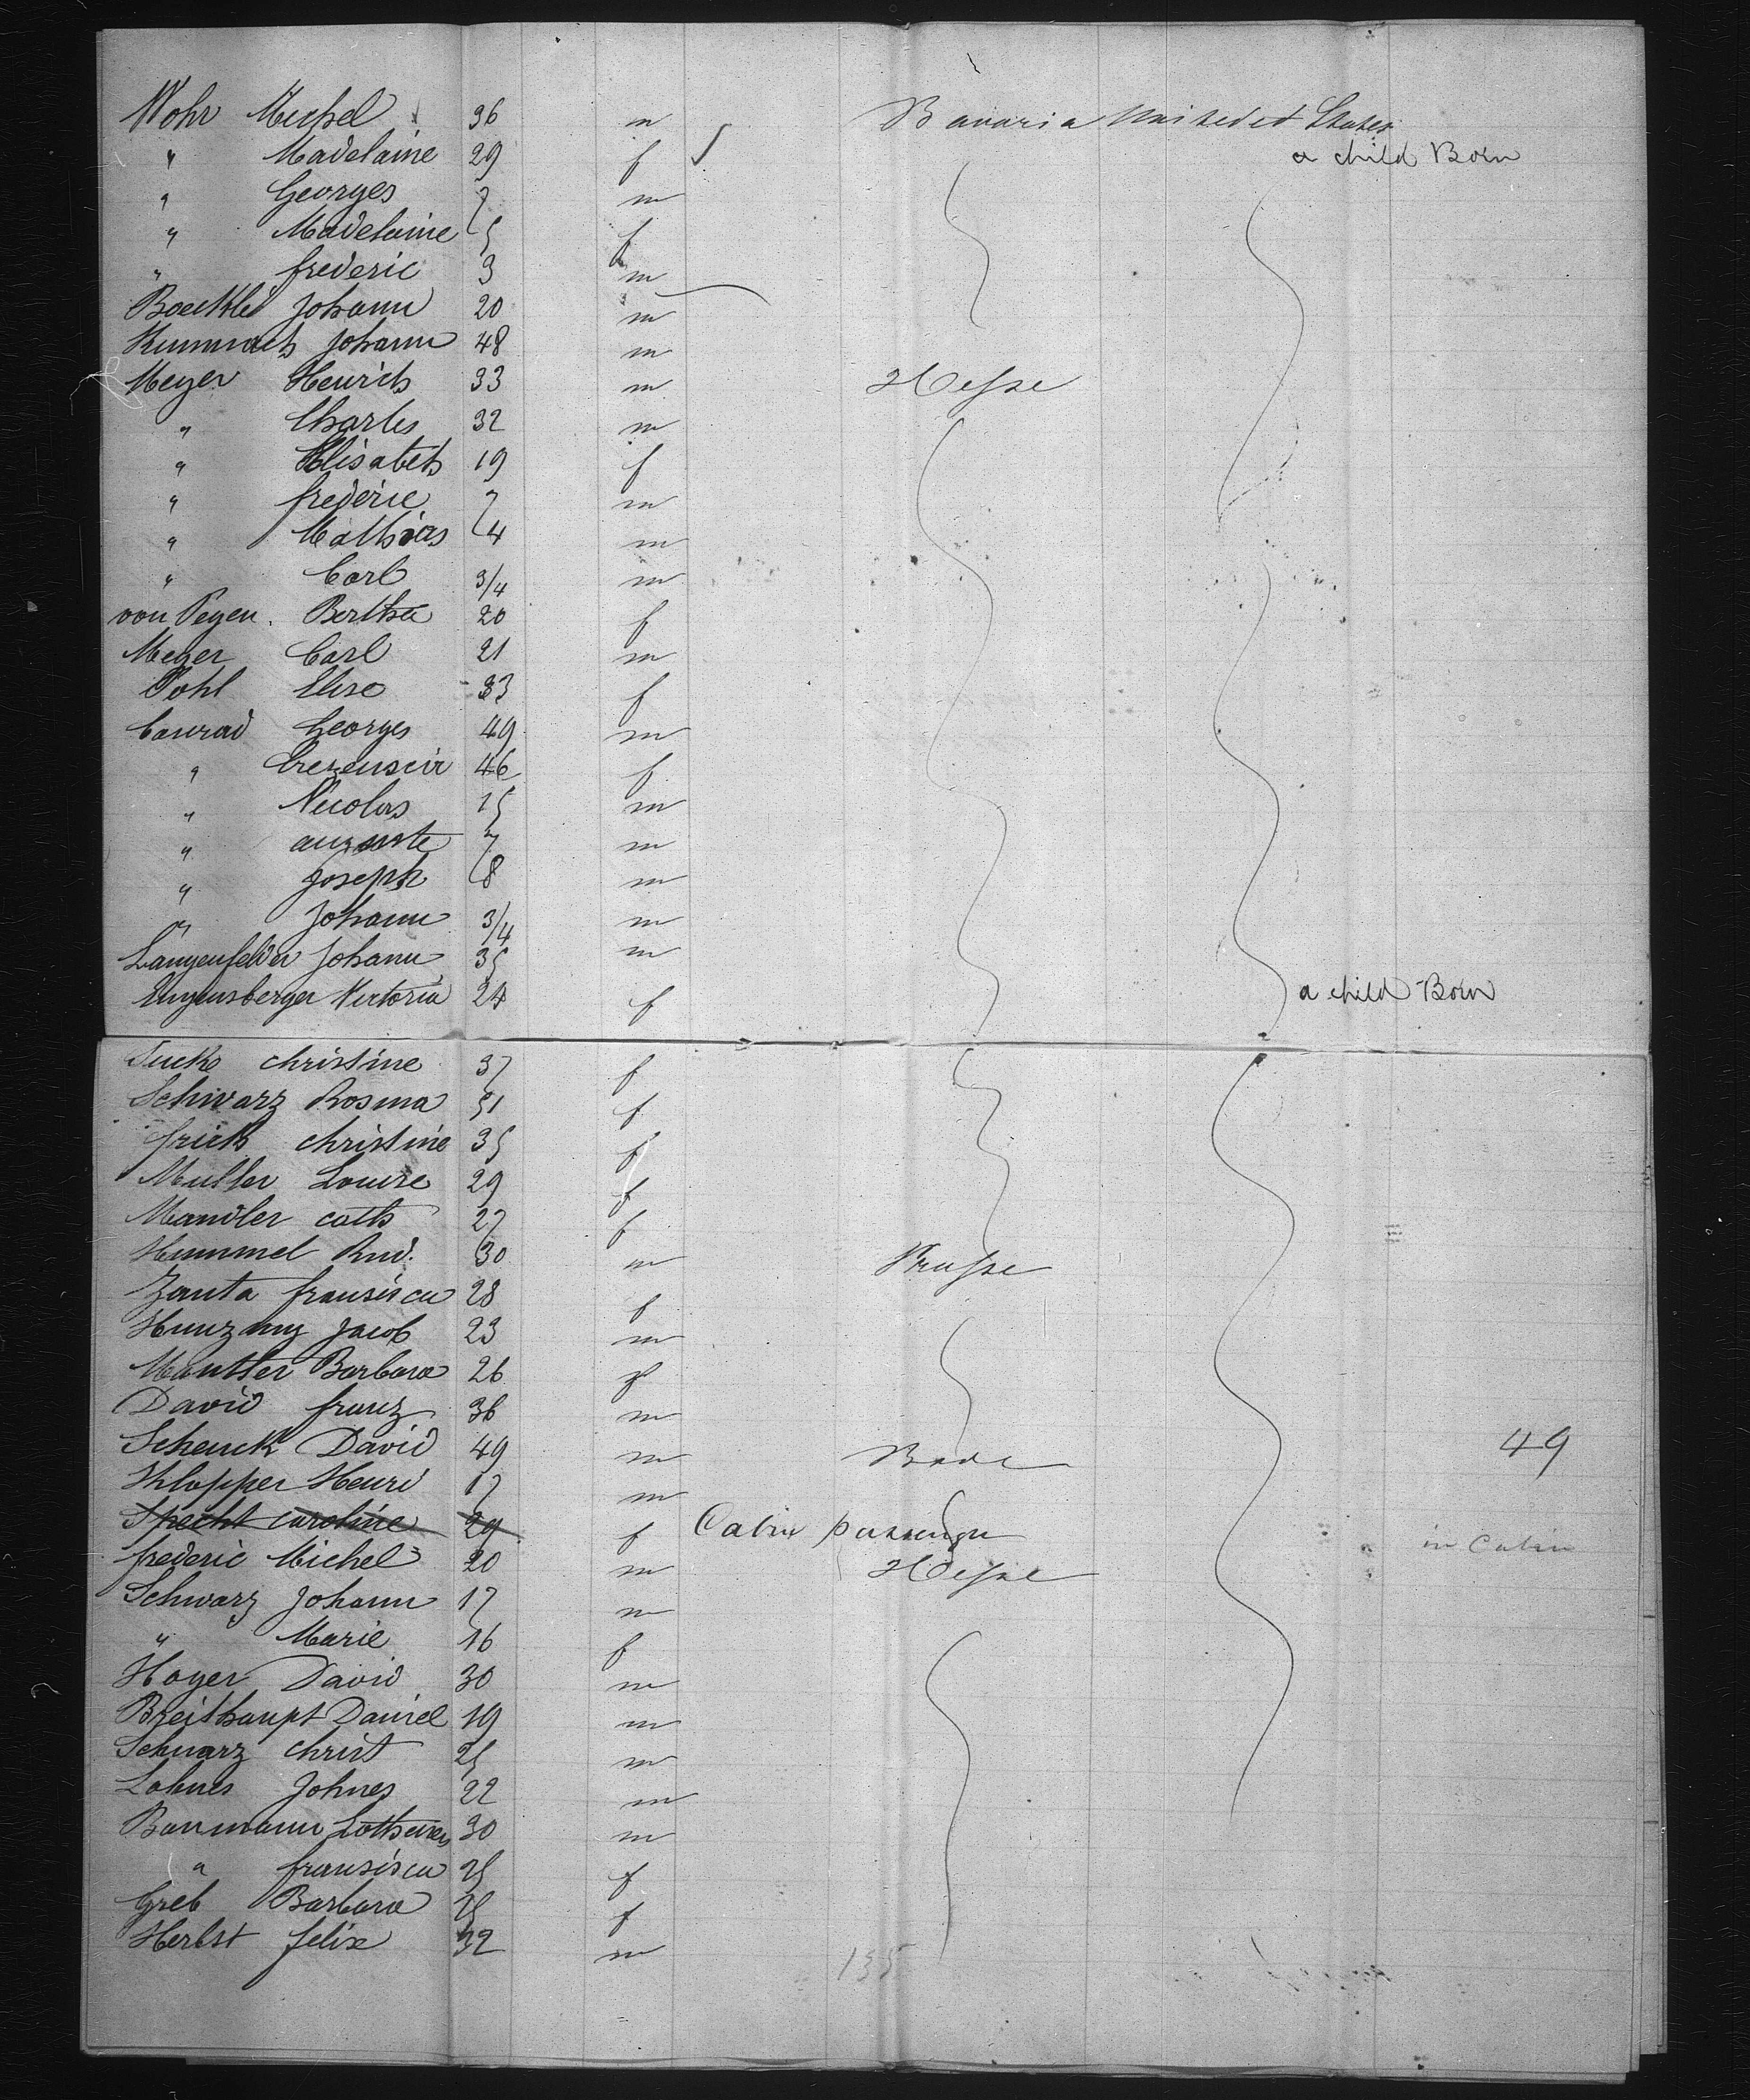 Wohr Michel 36 m Bavaria United St States
" Madelaine 29 f a child Born
" Georges 7 m
" Madelaine 5 f
" frederic 3 m
Boeckle Johann 20 m
Kummach Johann 48 m
Meyer Heurich 33 m Hesse
" Charles 32 m
" Elisabeth 19 f
" frederic 7 m
" Mathias 4 m
" Carl 3/4 m
von Pegen. Bertha 20 f
Meyer Carl 21 m
Pohl Elise 33 f
Conrad Georges 49 m
" 46 f
" Nicolas 15 m
" auguste 7 m
" Joseph 8 m
" Johann 3/4 m
Langenfelder Johann 35 m
Engensberger Victoria 24 f a child Born
Fucks christine 37 f
Schwarz Rosina 51 f
frich christine 35 f
Muller Louise 29 f
Mandler cath 27 f
Hummel Rud. 30 m Prusse
Zanta fransisca 28 f
Jacob 23 m
Mantler Barbara 26 f
David franz 36 m
Schenck David 49 m Bade 49
Klopper Henri 17 m
Specht caroline 29 f Cabin passenger in Cabin
frederic Michel 20 m Hesse
Schwarz Johann 17 m
" Marie 16 f
Hoyer David 30 m
Breithaupt Daniel 19 m
Schwarz christ 25 m
Lohnes Johnes 22 m
Baumann 30 m
" fransisca 25 f
Greb Barbara 25 f
Herbst felix 32 m
135